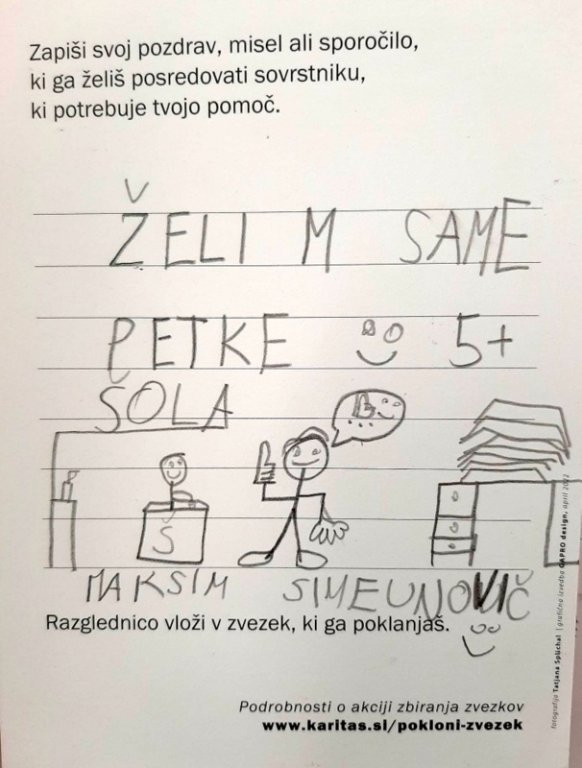 Zapiši svoj pozdrav, misel ali sporočilo,
ki ga želiš posredovati sovrstniku,
ki potrebuje tvojo pomoč.
ŽELI M SAME
PETKE 5+
ŠOLA
S
MAKSIM SIMEUNOVIČ
Razglednico vloži v zvezek, ki ga poklanjaš.
Podrobnosti o akciji zbiranja zvezkov
www.karitas.si/pokloni-zvezek
fotografija Tatjana Splichal | grafična izvedba GAPRO design, april 2022